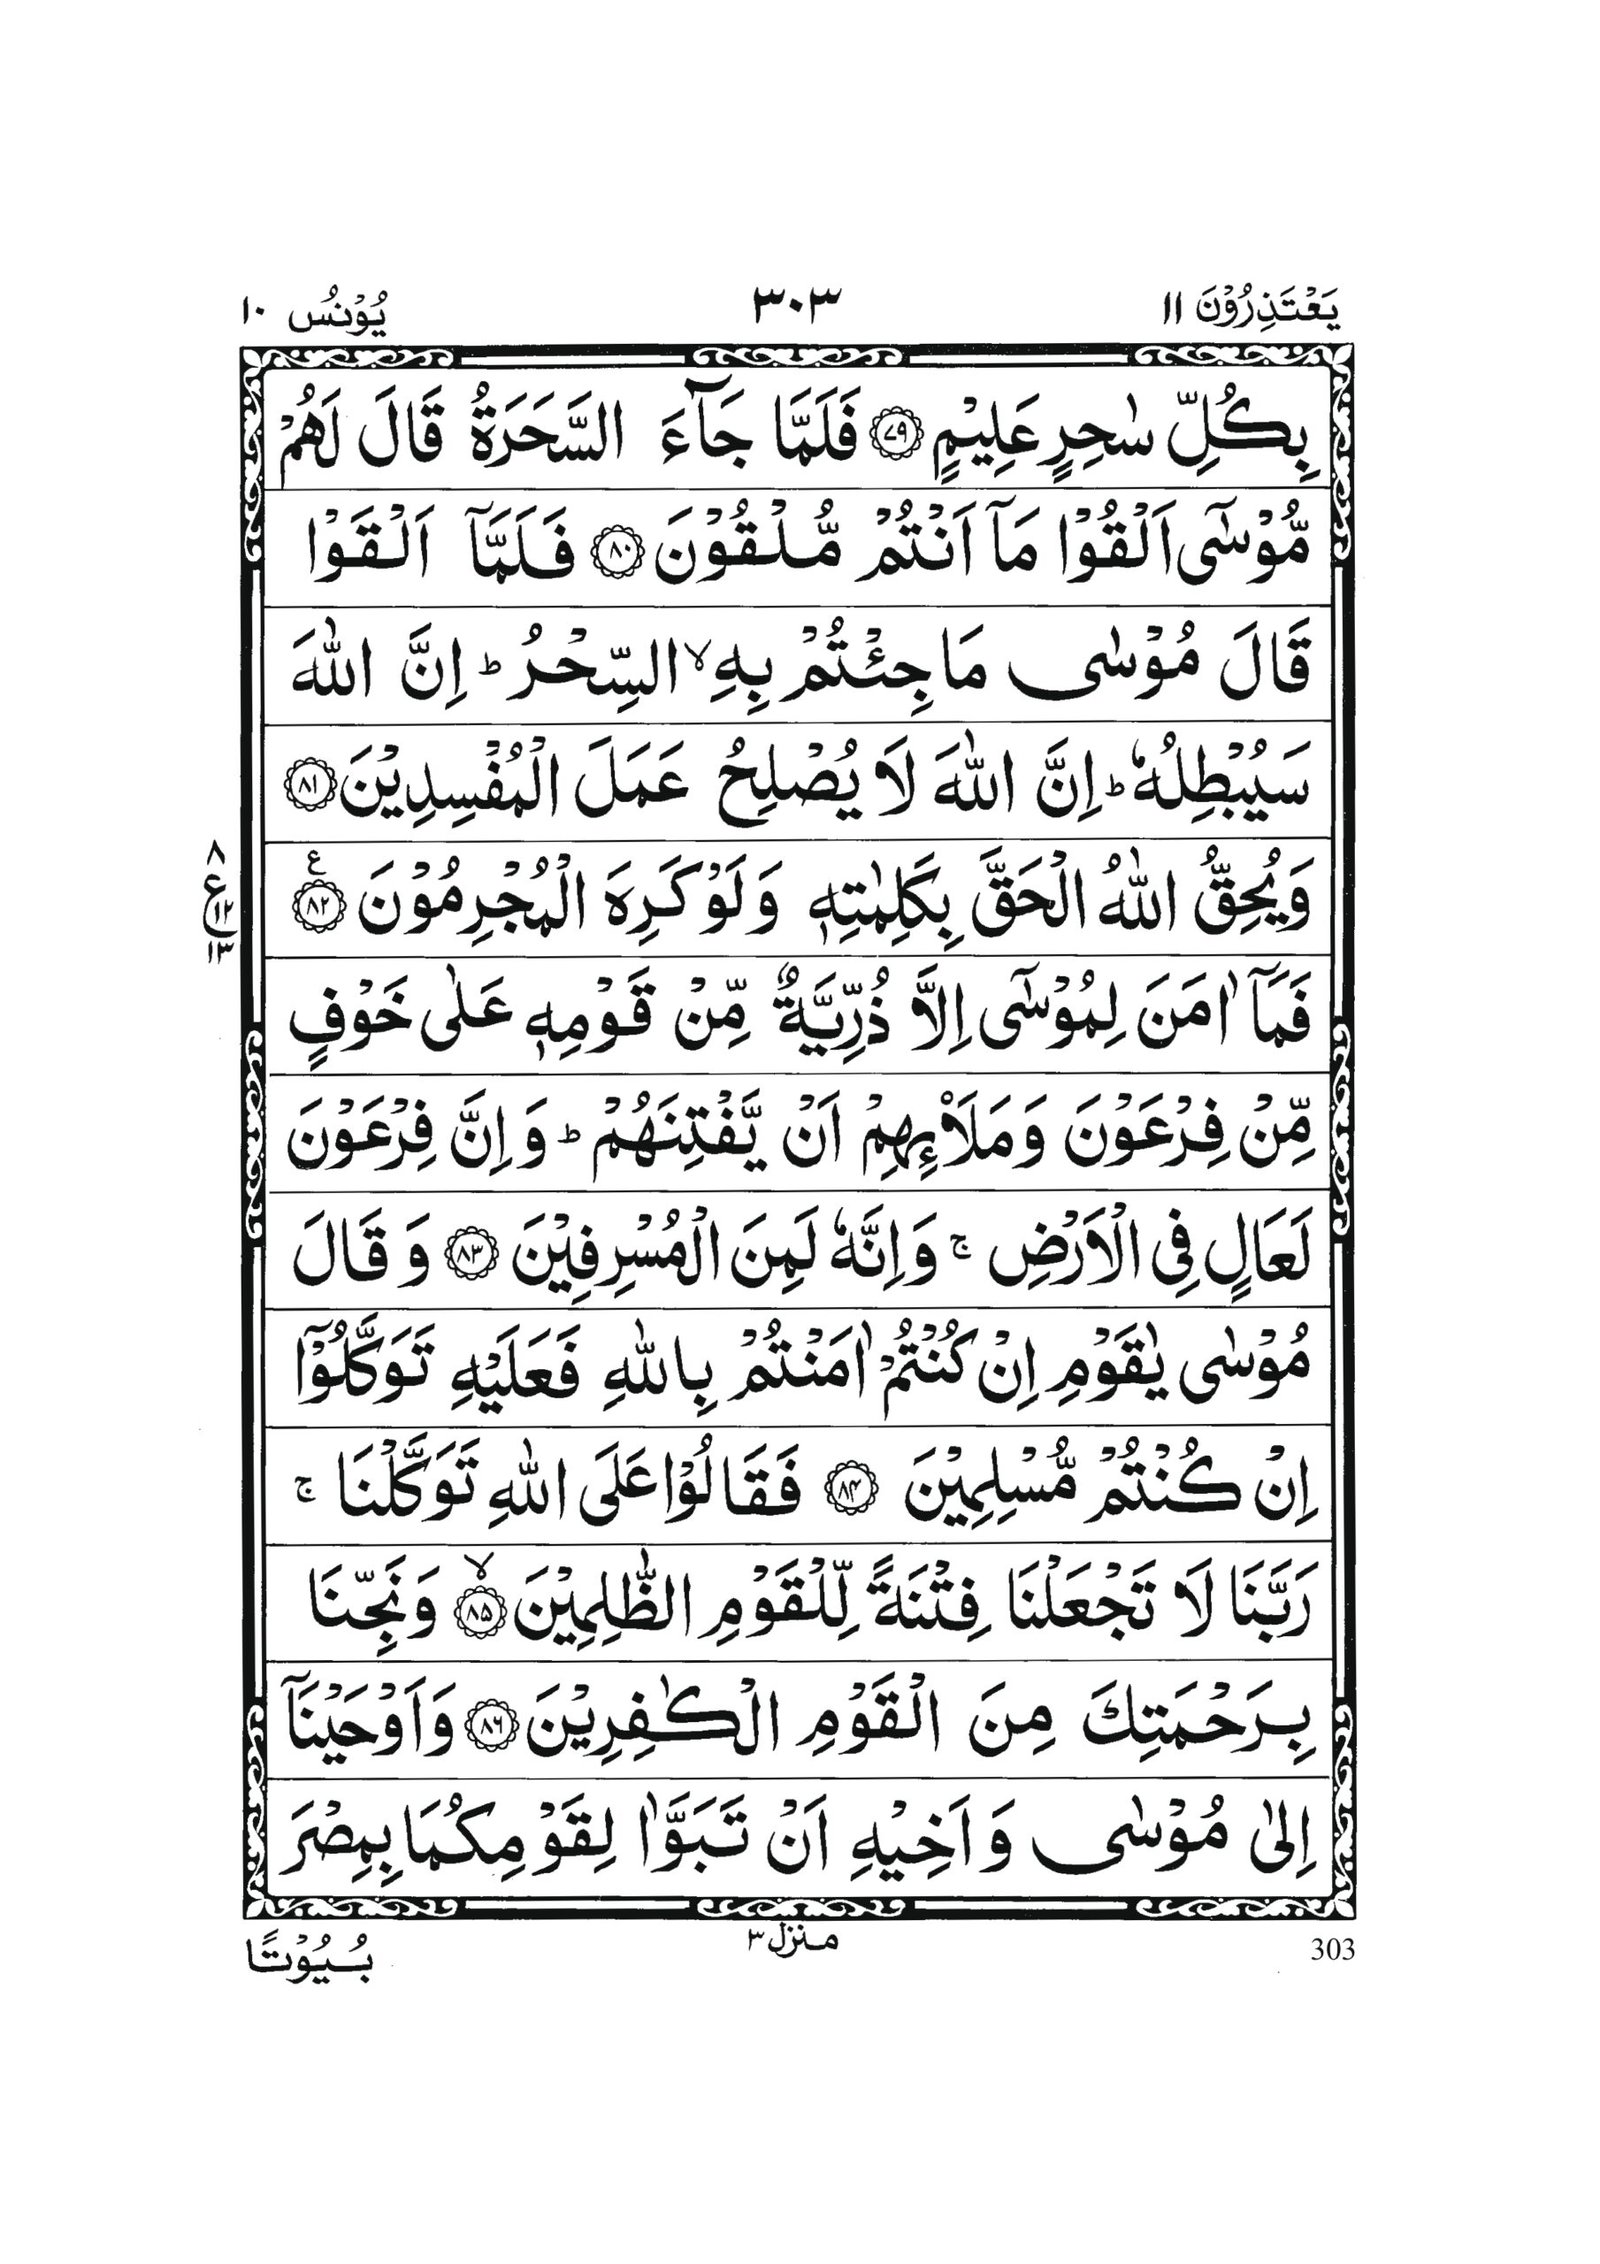 يَعْتَذِرُوْنَ ١١ ٣٠٣ يُوْنُس ١٠
بِكُلِّ سٰحِرٍ عَلِيْمٍ ﴿٧٩﴾ فَلَمَّا جَآءَ السَّحَرَةُ قَالَ لَهُمْ
مُّوْسٰٓى اَلْقُوْا مَآ اَنْتُمْ مُّلْقُوْنَ ﴿٨٠﴾ فَلَمَّآ اَلْقَوْا
قَالَ مُوْسٰى مَا جِئْتُمْ بِهِ ۙ السِّحْرُ ؕ اِنَّ اللّٰهَ
سَيُبْطِلُهٗ ؕ اِنَّ اللّٰهَ لَا يُصْلِحُ عَمَلَ الْمُفْسِدِيْنَ ﴿٨١﴾
وَيُحِقُّ اللّٰهُ الْحَقَّ بِكَلِمٰتِهٖ وَلَوْ كَرِهَ الْمُجْرِمُوْنَ ﴿٨٢﴾ ع
٨ ع ١٢ ١٣
فَمَآ اٰمَنَ لِمُوْسٰٓى اِلَّا ذُرِّيَّةٌ مِّنْ قَوْمِهٖ عَلٰى خَوْفٍ
مِّنْ فِرْعَوْنَ وَمَلَا۟ئِهِمْ اَنْ يَّفْتِنَهُمْ ؕ وَاِنَّ فِرْعَوْنَ
لَعَالٍ فِى الْاَرْضِ ۚ وَاِنَّهٗ لَمِنَ الْمُسْرِفِيْنَ ﴿٨٣﴾ وَقَالَ
مُوْسٰى يٰقَوْمِ اِنْ كُنْتُمْ اٰمَنْتُمْ بِاللّٰهِ فَعَلَيْهِ تَوَكَّلُوْٓا
اِنْ كُنْتُمْ مُّسْلِمِيْنَ ﴿٨٤﴾ فَقَالُوْا عَلَى اللّٰهِ تَوَكَّلْنَا ۚ
رَبَّنَا لَا تَجْعَلْنَا فِتْنَةً لِّلْقَوْمِ الظّٰلِمِيْنَ ﴿٨٥﴾ ۙ وَنَجِّنَا
بِرَحْمَتِكَ مِنَ الْقَوْمِ الْكٰفِرِيْنَ ﴿٨٦﴾ وَاَوْحَيْنَآ
اِلٰى مُوْسٰى وَاَخِيْهِ اَنْ تَبَوَّاٰ لِقَوْمِكُمَا بِمِصْرَ
303 منزل ٣ بُيُوْتًا